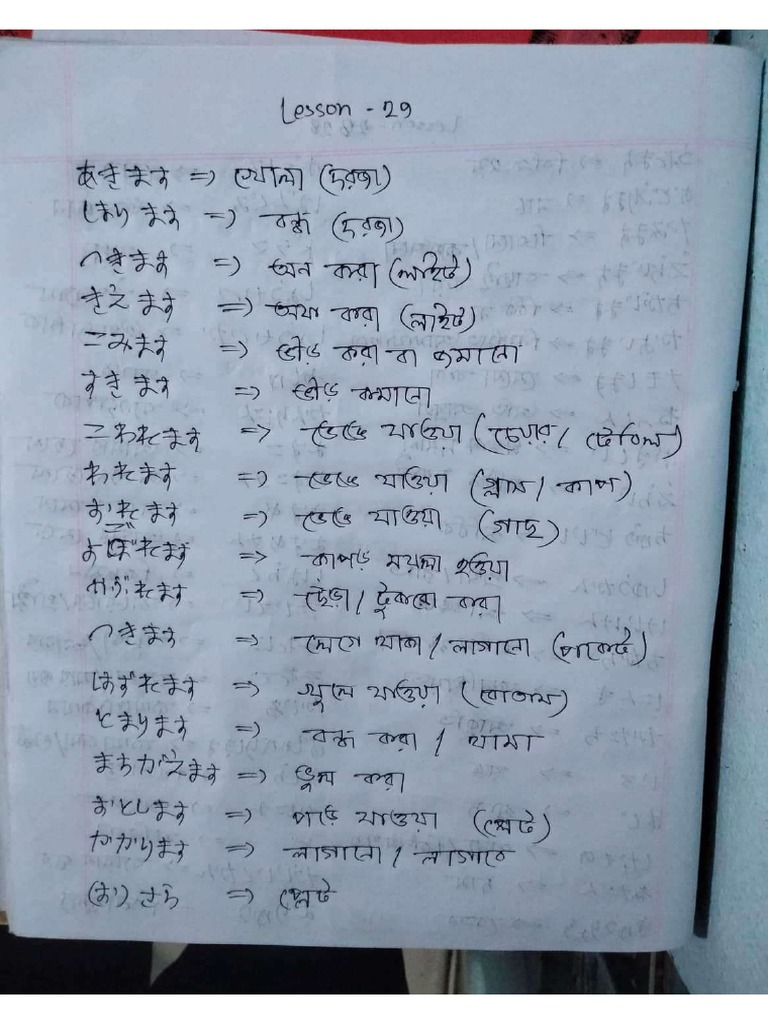 Lesson - 29
あきます => খোলা (দরজা)
しまります => বন্ধ (দরজা)
つきます => অন করা (লাইট)
きえます => অফ করা (লাইট)
こみます => ভীড় করা বা জমানো
すきます => ভীড় কমানো
こわれます => ভেঙে যাওয়া (চেয়ার/ টেবিল)
われます => ভেঙে যাওয়া (গ্লাস/ কাপ)
おれます => ভেঙে যাওয়া (গাছ)
=> কাপড় ময়লা হওয়া
やぶれます => ছেঁড়া/ টুকরো করা
つきます => লেগে থাকা/ লাগানো (পকেট)
はずれます => খুলে যাওয়া (বোতাম)
とまります => বন্ধ করা/ থামা
まちがえます => ভুল করা
おとします => পড়ে যাওয়া (প্লেট)
かかります => লাগানো/ লাগাতে
(お) さら => প্লেট